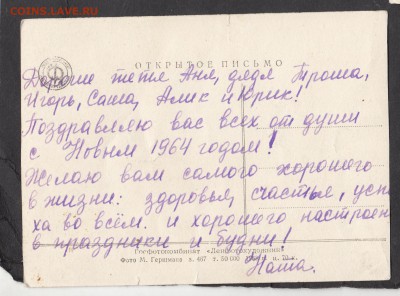 COINS.LAVE.RU
ОТКРЫТОЕ ПИСЬМО
Дорогие тетя Аня, дядя Троша,
Игорь, Саша, Алик и Крик!
Поздравляю вас всех от души
с Новым 1964 годом!
Желаю вам самого хорошего
в жизни: здоровья, счастья, успе
ха во всём. и хорошего настроен
в праздники и будни!
Госфотокомбинат
Фото М. Гершмана з. 467 т. 50 000
Наташа.